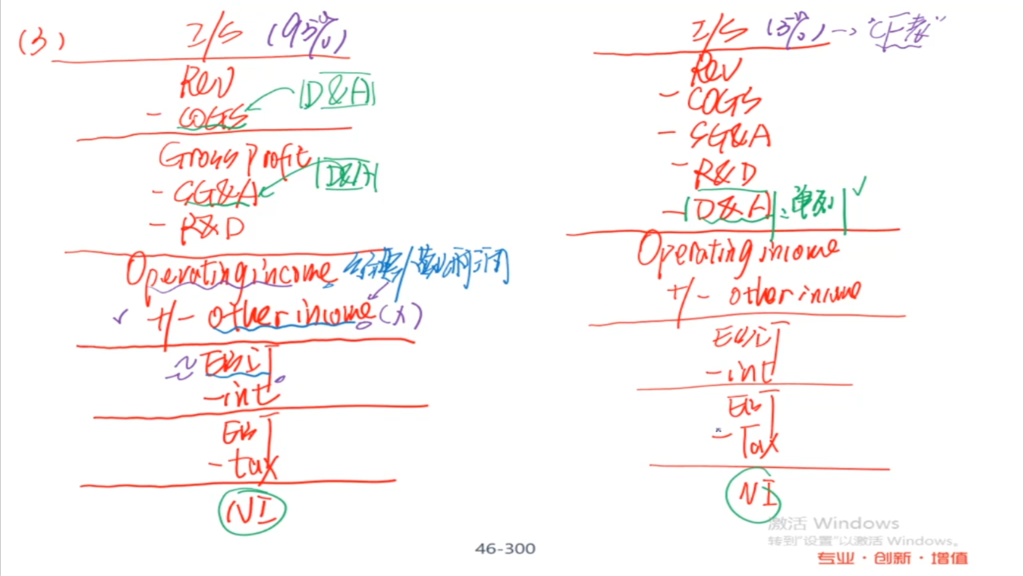 (3)
I/S (95%)
Rev
- COGS |D&A|
Gross Profit
- SG&A |D&A|
- R&D
Operating income 经营/营业利润
✓ +/- other income (X)
≈ EBIT
- int
EBT
- tax
NI
I/S (5%) → "CF表"
Rev
- COGS
- SG&A
- R&D
- |D&A|: 单列| ✓
Operating income
+/- other income
EBIT
- int
EBT
- Tax
NI
46-300
激活 Windows
转到"设置"以激活 Windows。
专业·创新·增值